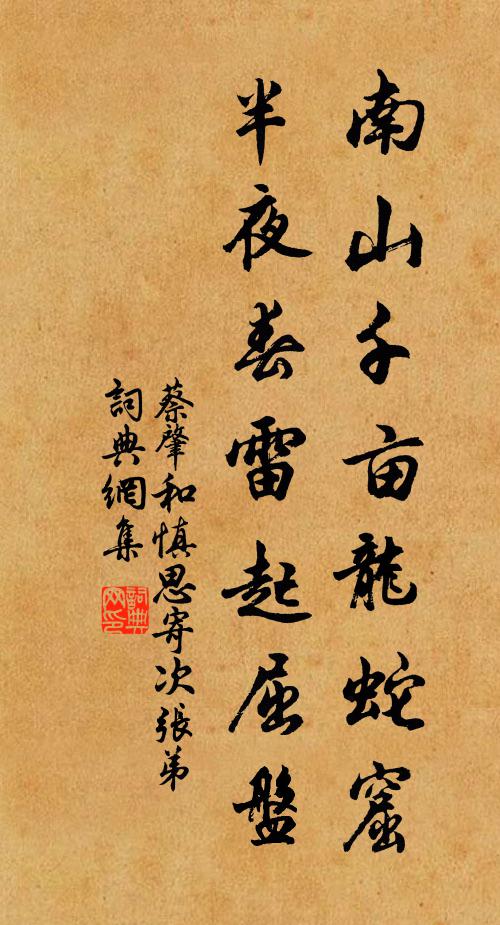 南山千亩龍蛇窟
半夜春雷起屈盤
蔡肇和慎思寄次張弟
詞典網集
詞典网印